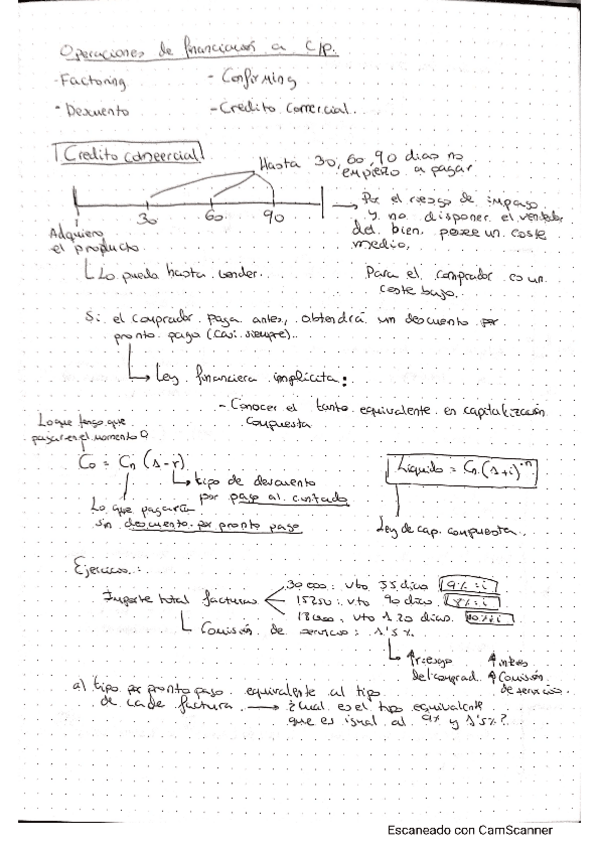 Operaciones de financiación a C/p.
- Factoring - Confirming
- Descuento - Credito comercial.
Credito comercial
Hasta 30, 60, 90 dias no
empiezo a pagar
30 60 90
Adquiero
el producto
Lo puedo hasta vender.
→ Por el riesgo de impago
y no disponer el vendedor
del bien, posee un coste
medio,
Para el comprador es un
coste bajo.
Si el comprador paga antes, obtendrá un descuento por
pronto pago (casi siempre)..
Ley financiera implicita:
- Conocer el tanto equivalente en capitalización
compuesta
Lo que tengo que
pagar en el momento 0
C₀ = Cn (1-r)
tipo de descuento
por pago al contado
Lo que pagaría
sin descuento por pronto pago
Líquido = Cn.(1+i)⁻ⁿ
Ley de cap. compuesta.
Ejercicio:
Importe total facturas
30000: vto 35 dias 9% = i
15250: vto 90 dias
18000, vto 120 dias. 10% = i
Comisión de servicio: 1'5%
↑riesgo
del comprad.
↑Comisión
de servicio.
a) tipo por pronto pago equivalente al tipo
de cada factura. → ¿Cual es el tipo equivalente
que es igual al 9% y 1'5%?
Escaneado con CamScanner